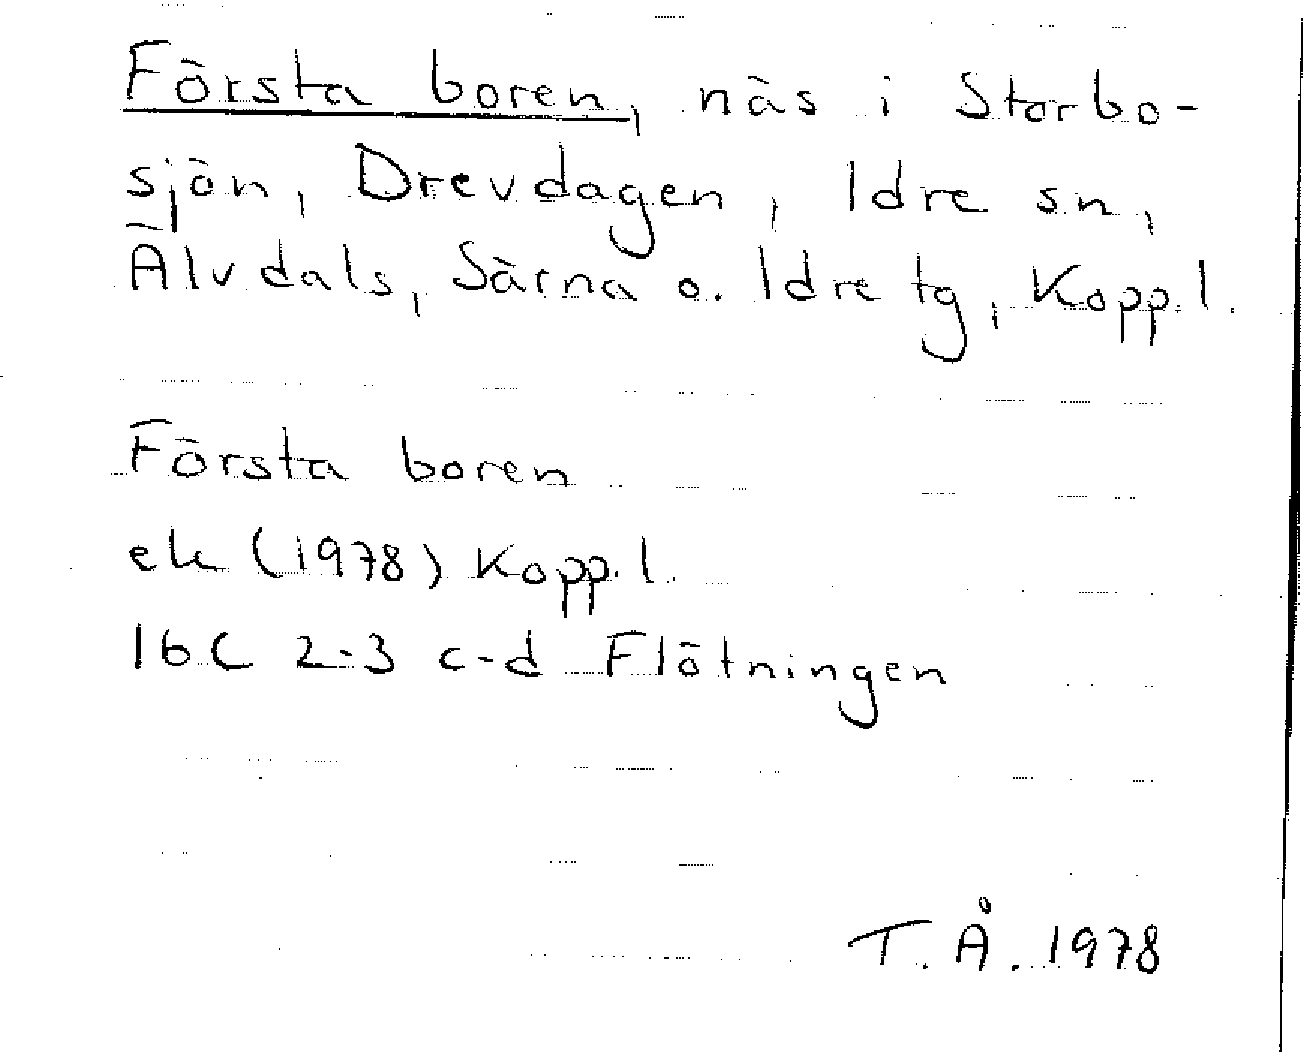 Första boren, näs i Storbo-
sjön, Drevdagen, Idre sn,
Älvdals, Särna o. Idre tg, Kopp.l.
Första boren
ek (1978) Kopp.l.
16C 2-3 c-d Flötningen
T.Å. 1978